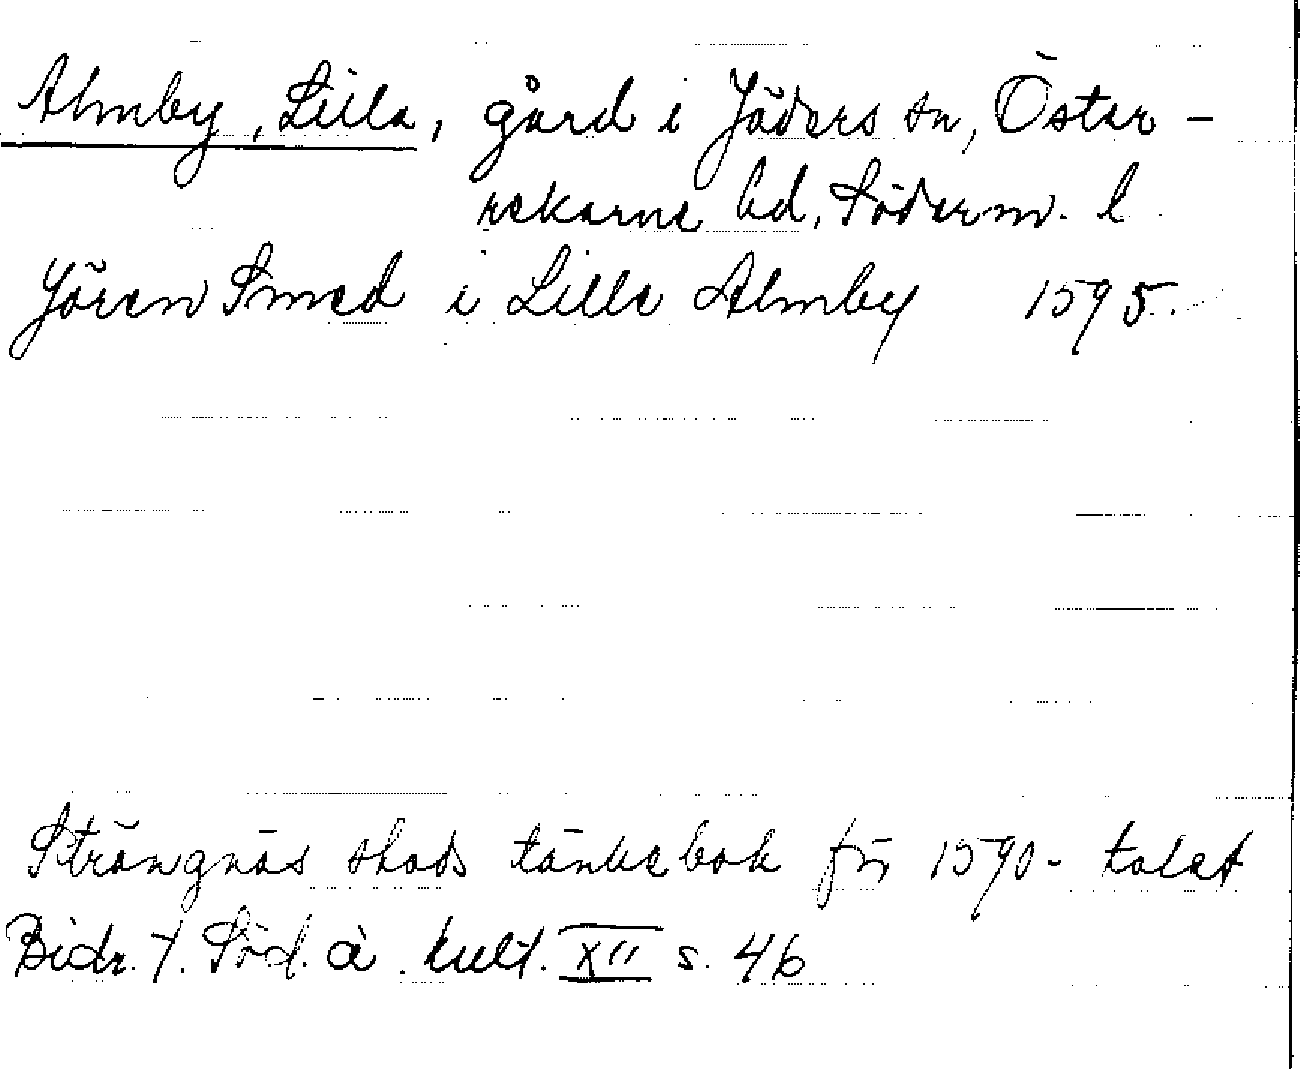 Almby, Lilla, gård i Jäders sn, Öster-
rekarne hd, Söderm. l.
Jören Smed i Lille Almby 1595.
Strängnäs stads tänkebok för 1590-talet
Bidr. t. Söd. ä. kult. XII s. 46